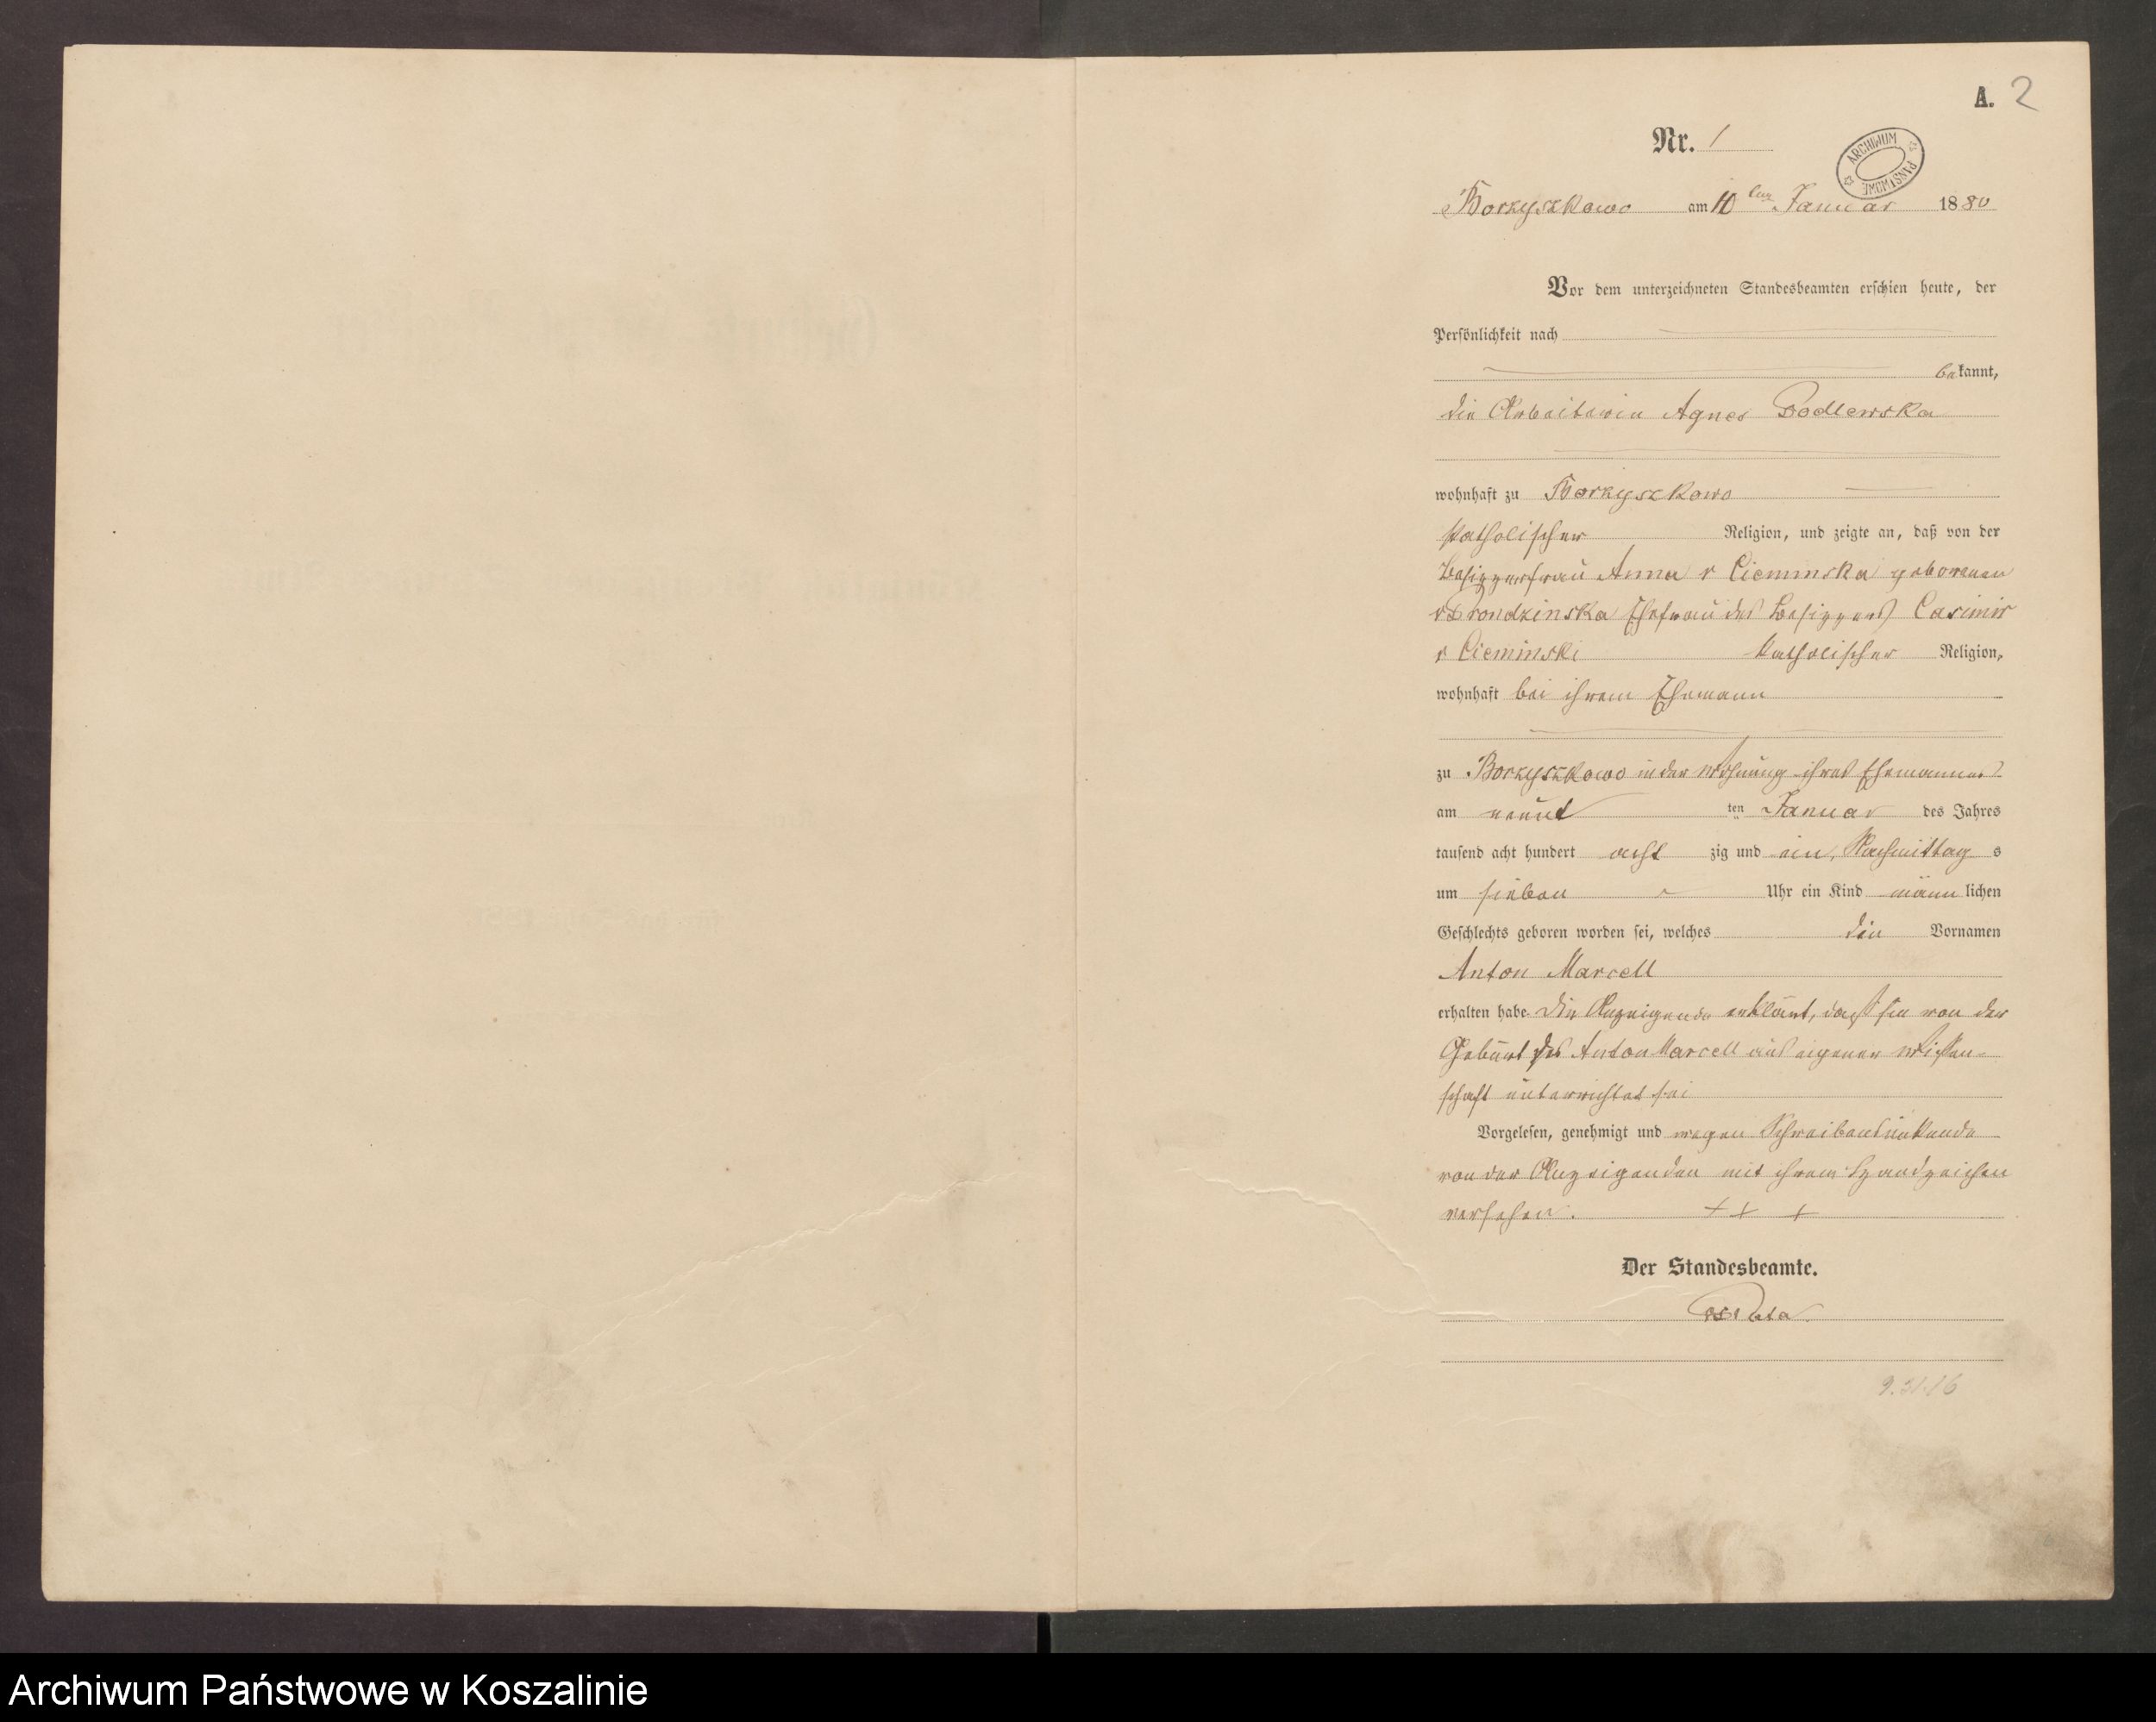 A. 2
Nr. 1
ARCHIWUM PAŃSTWOWE
Borzyszkowo am 10 ten Januar 1880
Vor dem unterzeichneten Standesbeamten erschien heute, der
Persönlichkeit nach
bekannt,
die Arbeiterin Agnes Podlewska
wohnhaft zu Borzyszkowo
katholischer Religion, und zeigte an, daß von der
Besitzerfrau Anna v Cieminska geborenen
v Prondzinska Ehefrau des Besitzers Casimir
v Cieminski katholischer Religion,
wohnhaft bei ihrem Ehemann
zu Borzyszkowo in der Wohnung ihres Ehemannes
am neunt ten Januar des Jahres
tausend acht hundert acht zig und ein, Nachmittag s
um sieben Uhr ein Kind männ lichen
Geschlechts geboren worden sei, welches die Vornamen
Anton Marcell
erhalten habe. Die Anzeigende erklärt, daß sie von der
Geburt des Anton Marcell aus eigener Wissen-
schaft unterrichtet sei
Vorgelesen, genehmigt und wegen Schreibensunkunde
von der Anzeigenden mit ihrem Handzeichen
versehen. + + +
Der Standesbeamte.
Archiwum Państwowe w Koszalinie